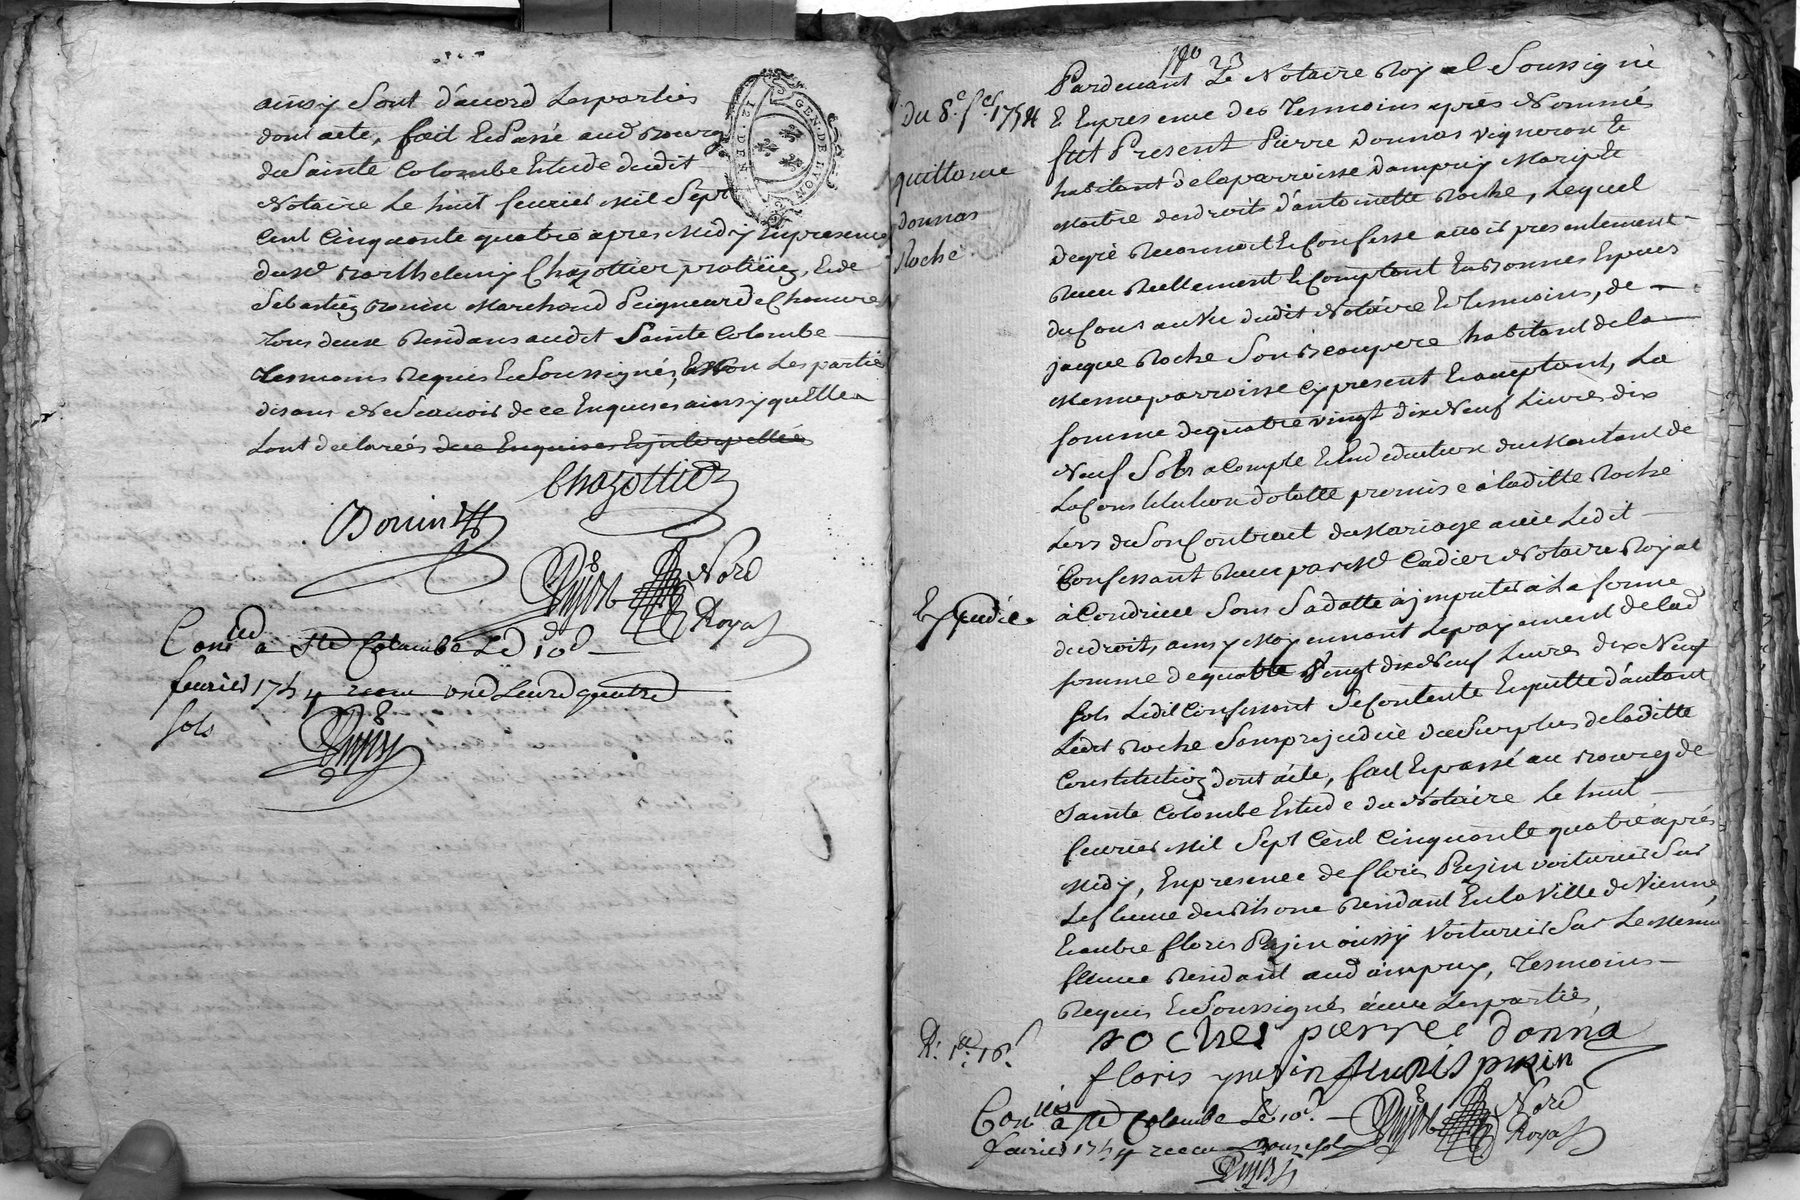 ainsy sont d'accord les parties
dont acte, fait et passé aud. Bourg
de Sainte Colombe Etude dudit
Notaire le huit fevrier mil Sept
Cent Cinquante quatre apres Midy En presence
du Sr Barthelemy Chazottier praticien, et de
Sebastien Bonin Marchand Peigneur de Chanvre
Tous deux Residans audit Sainte Colombe
Tesmoins Requis et Soussignés, les parties
disans ne Scavoir de ce Enquises ainsy qu'Elle
Lont declarées de ce Enquises Et interpellées
GEN. DE LYON
12. DEN.
Chazottier
Bonin
Nore
Royal
à Ste Colombe Le 10e
fevrier 1754 receu une Livre quatre
sols
Pardevant Le Notaire Royal Soussigné
Du 8e. fer. 1754
Et En presence des Tesmoins après Nommés
fut Present Pierre Donnas vigneron et
quittance
habitant de la parroisse Dampuy Mary et
donnas
Maitre des droits d'antoinette Roche, Lequel
Roche
de gré Reconnoit et Confesse avoir presentement
Receu Reellement et Comptant En Bonnes Especes
du Cours au Veu dudit Notaire et Tesmoins, de
jacque Roche Son Beaupere habitant de la
Meme parroisse cy present Et acceptant, La
somme de quatre vingt dix Neuf Livres dix
Neuf Sols a Compte et En deduction du Montant de
La Constitution dotalle promise à laditte Roche
Lors de Son Contract de Mariage avec Ledit
Confessant Receu par Me Cadier Notaire Royal
Expediée
à Condrieu Sous Sa datte à jmputer a La forme
du droit, ainsy Moyennant Le payement de lad
somme de quatre Vingt dix Neuf Livres dix Neuf
sols Ledit Confessant Se Contente Et quitte d'autant
Ledit Roche Sans prejudice du Surplus de laditte
Constitution dont acte, fait Et passé au Bourg de
Sainte Colombe Etude du Notaire le huit
fevrier Mil Sept Cent Cinquante quatre après
Midy, En presence de floris voiturier Sur
Le fleuve du Rhone Residant En la Ville de Vienne,
Et autre floris aussy Voiturier Sur Le Meme
fleuve Residant aud ampuy, Tesmoins
Requis Et Soussignés avec Les parties
roches pierre donna
floris
à Ste Colombe Le 10e.
Nore
Royal
fevrier 1754 receu Douze sols